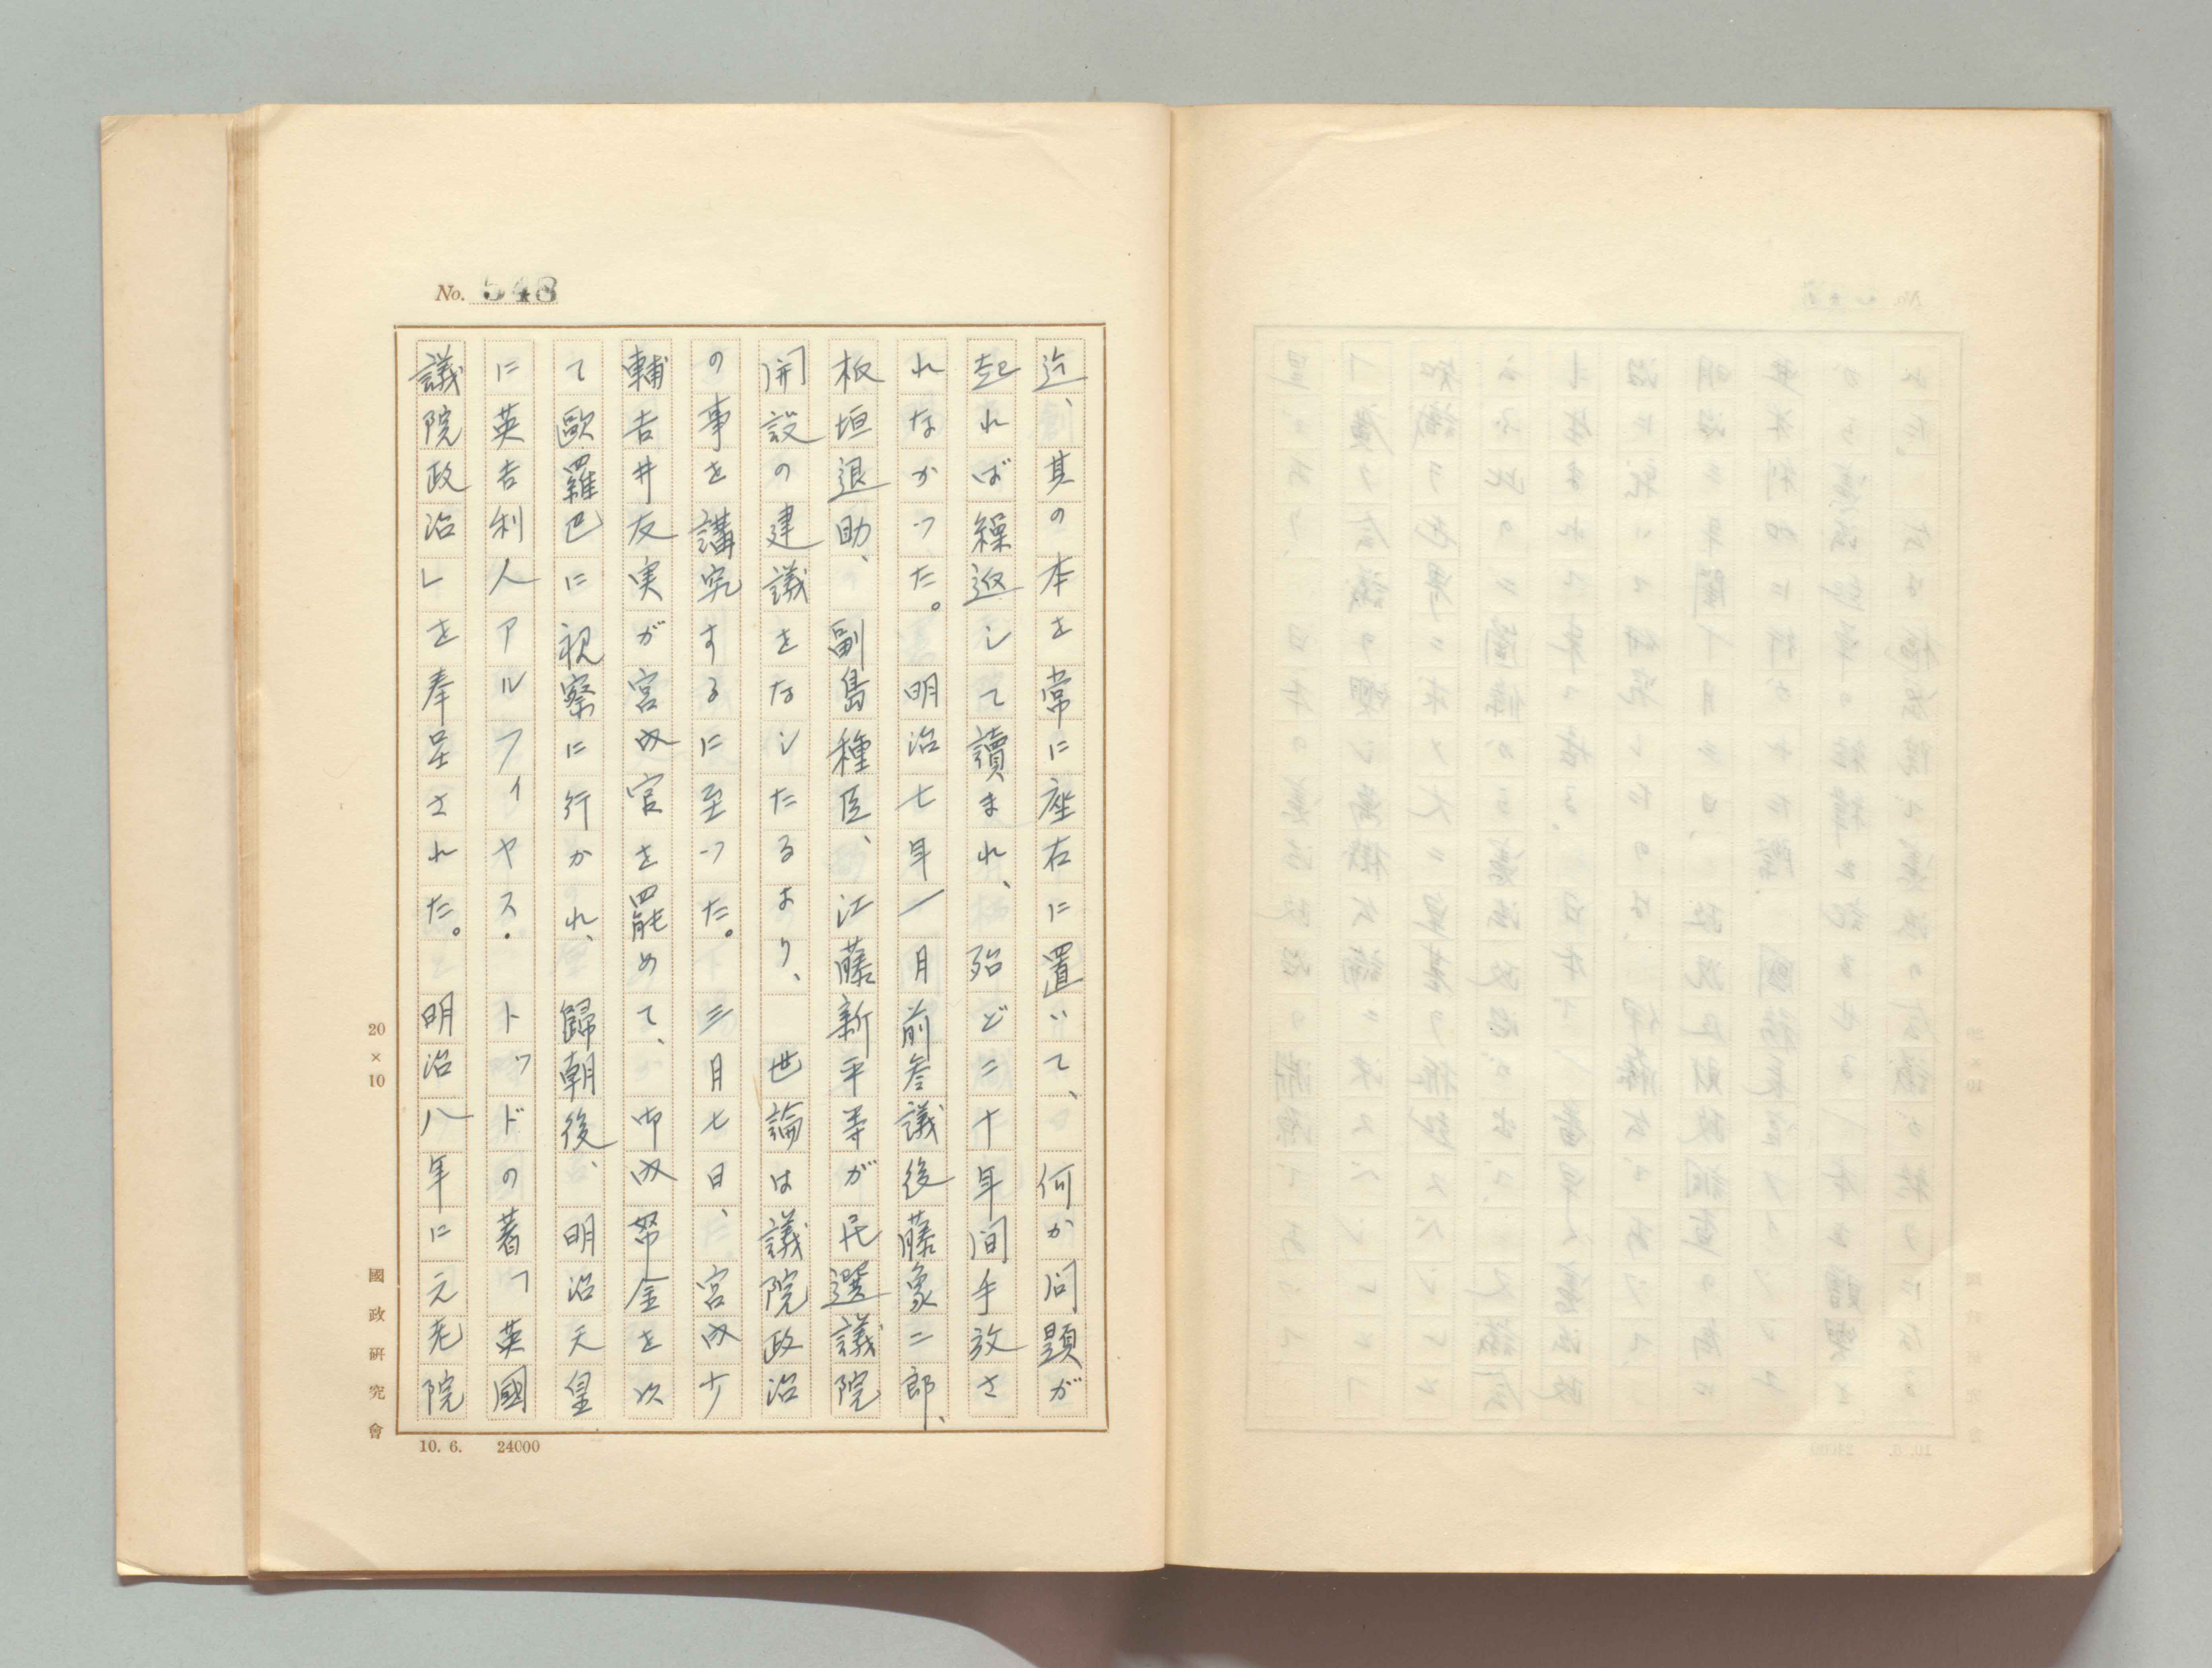 No. 548
迄、其の本を常に座右に置いて、何か问題が
起れば繰返して讀まれ、殆ど二十年间手放さ
れなかつた。明治七年一月前参議後藤象二郎、
板垣退助、副島種臣、江藤新平等が民選議院
開設の建議をなしたるより、世論は議院政治
の事を講究するに至つた。三月七日、宮内少
輔吉井友実が宮内官を罷めて、御内帑金を以
て歐羅巴に視察に行かれ、歸朝後、明治天皇
に英吉利人アルフィヤス・トッドの著「英國
議院政治」を奉呈された。明治八年に元老院
20×10
國政研究會
10. 6. 24000